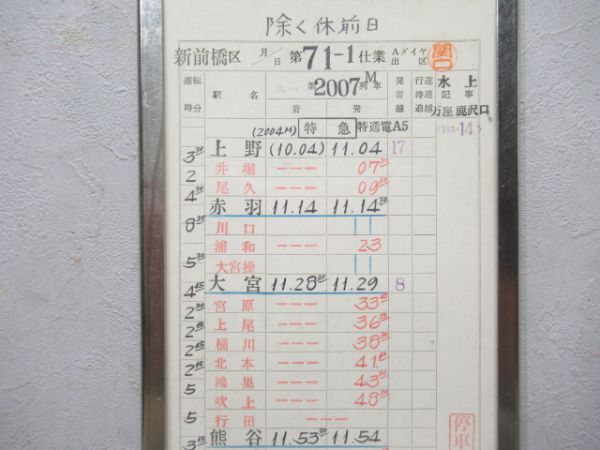 除く休前日
新前橋区 月/日 第71-1仕業 Aダイヤ出区 関口
運転時分 駅名 着 第2007M列車 発 発着線 行違待避 進越 水上 記事 万座鹿沢口
(2004M) 特急 特通電A5 (185-14)
上野 (10.04) 11.04 17
3³⁰ 井堀 --- 07³⁰
2 尾久 --- 09³⁰
4³⁰ 赤羽 11.14 11.14³⁰
川口 | |
8³⁰ 浦和 --- 23
大宮操
5³⁰ 大宮 11.28³⁰ 11.29 8
4⁴⁵ 宮原 --- 33⁴⁵
2³⁰ 上尾 --- 36
2⁴⁵ 桶川 --- 38
2⁴⁵ 北本 --- 41
2⁴⁵ 鴻巣 --- 43³⁰
5 吹上 --- 48³⁰
行田 ---
5 熊谷 11.53³⁰ 11.54
3⁴⁵
停車